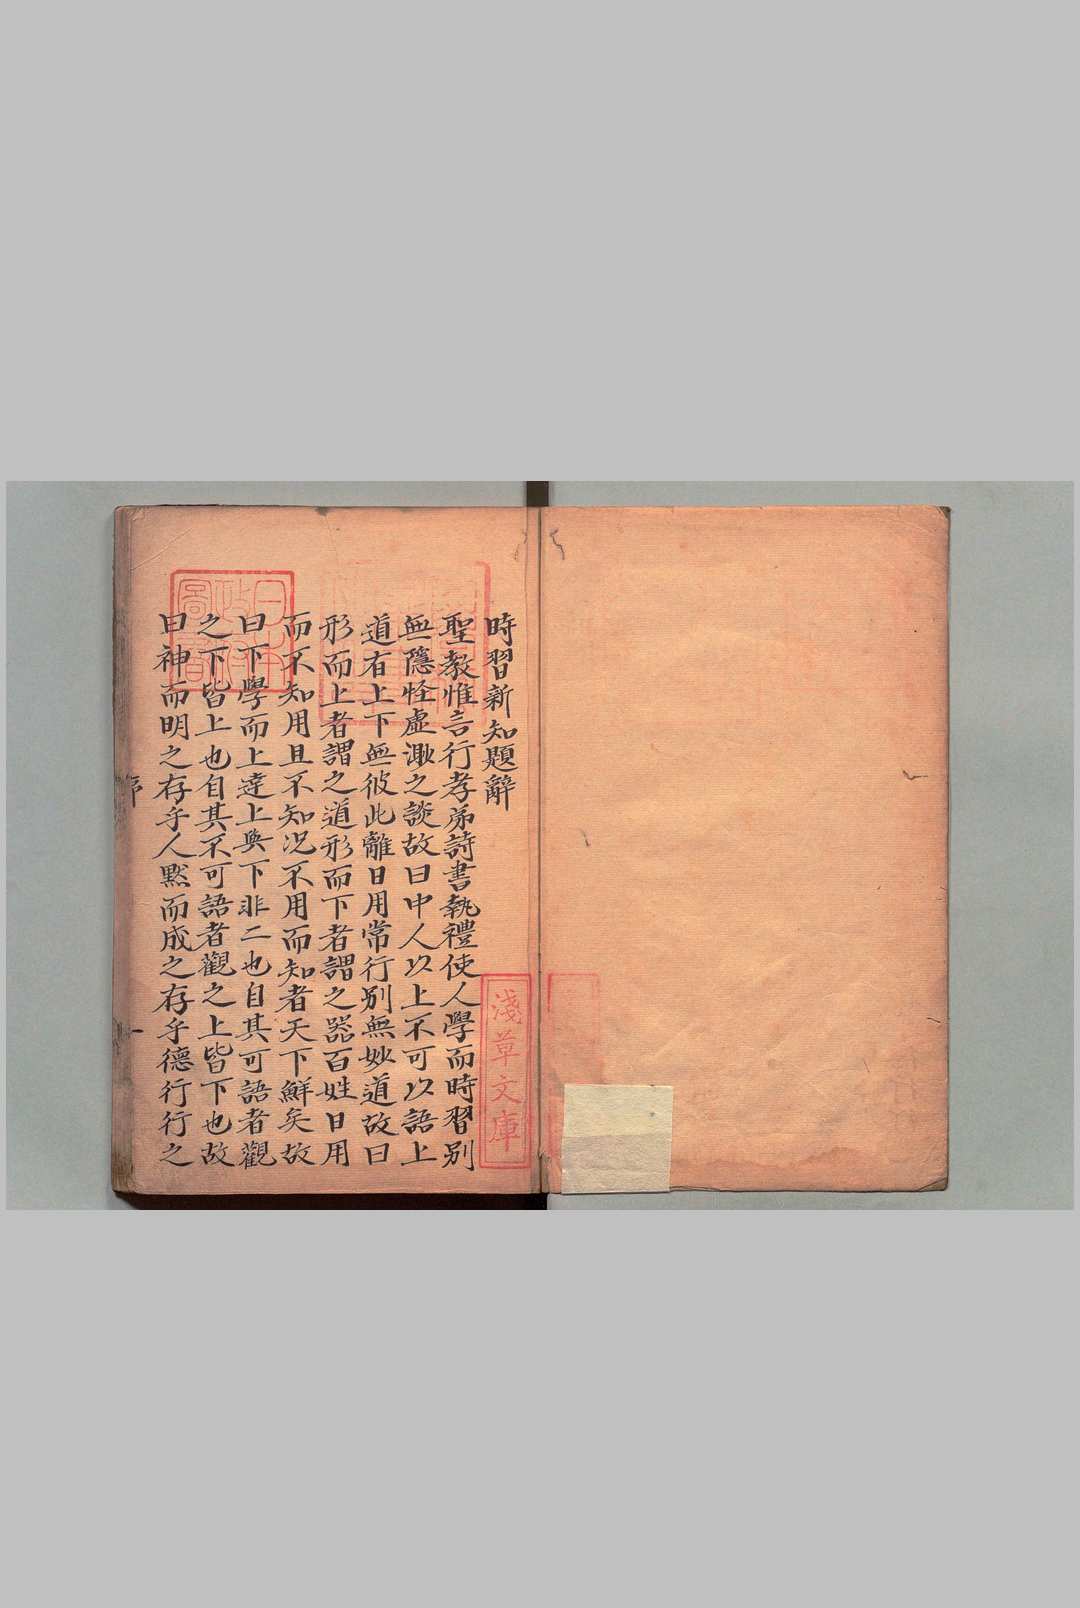 時習新知題辭
聖教惟言行孝弟詩書執禮使人學而時習別
無隱怪虛渺之談故曰中人以上不可以語上
道有上下無彼此離日用常行別無妙道故曰
形而上者謂之道形而下者謂之器百姓日用
而不知用且不知況不用而知者天下鮮矣故
曰下學而上達上與下非二也自其可語者觀
之下皆上也自其不可語者觀之上皆下也故
曰神而明之存乎人默而成之存乎德行行之
序
一
日本
政府
圖書
淺草文庫